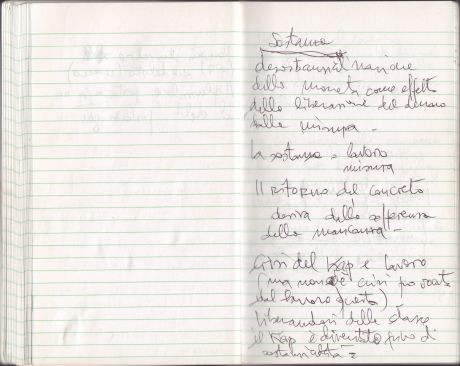 Sostanza
desostanzializzazione
della moneta come effetto
della liberazione del denaro
dalla misura -
la sostanza = lavoro
misura
Il ritorno del concreto
deriva dalla sofferenza
della mancanza -
Crisi del Kap e lavoro
(ma non è crisi provocata
dal lavoro questa)
liberandosi della classe
il Kap è diventato privo di
sostanzialità =